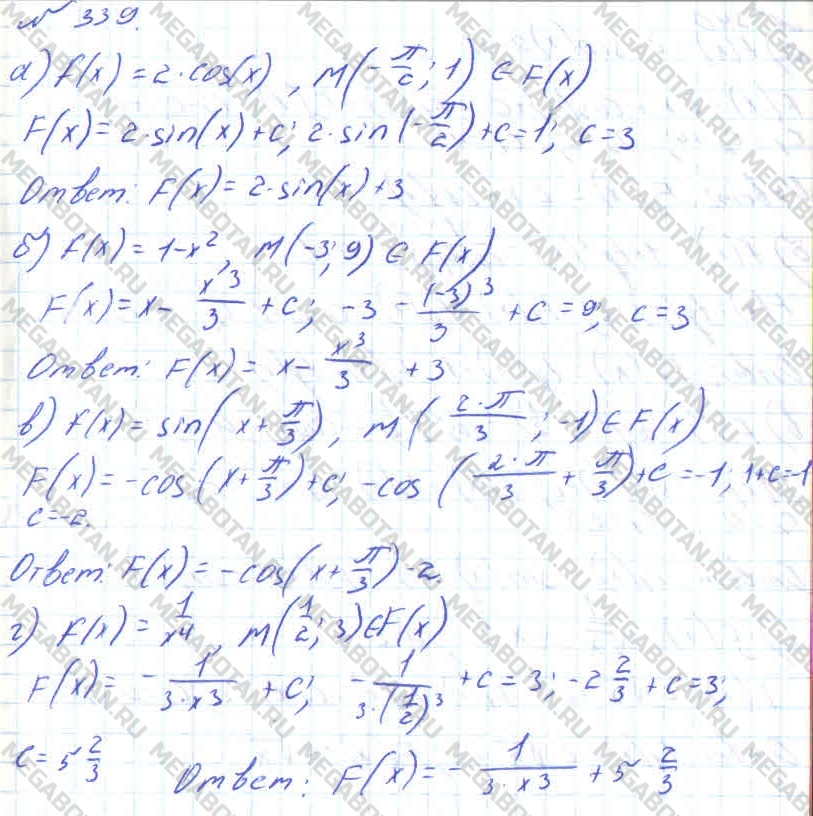 № 339.
а) f(x) = 2·cos(x), M(-π/2; 1) ∈ F(x)
F(x) = 2·sin(x)+c; 2·sin(-π/2)+c=1; c=3
Ответ: F(x) = 2·sin(x)+3
б) f(x) = 1-x², M(-3; 9) ∈ F(x)
F(x) = x - x³/3 + c; -3 - (-3)³/3 + c = 9; c=3
Ответ: F(x) = x - x³/3 + 3
в) f(x) = sin(x+π/3), M(2·π/3; -1) ∈ F(x)
F(x) = -cos(x+π/3)+c; -cos(2·π/3 + π/3)+c=-1; 1+c=-1
c=-2.
Ответ: F(x) = -cos(x+π/3)-2.
г) f(x) = 1/x⁴, M(1/2; 3) ∈ F(x)
F(x) = - 1/(3·x³) + c; - 1/(3·(1/2)³) + c = 3; -2 2/3 + c = 3;
c = 5 2/3 Ответ: F(x) = - 1/(3·x³) + 5 2/3
MEGABOTAN.RU